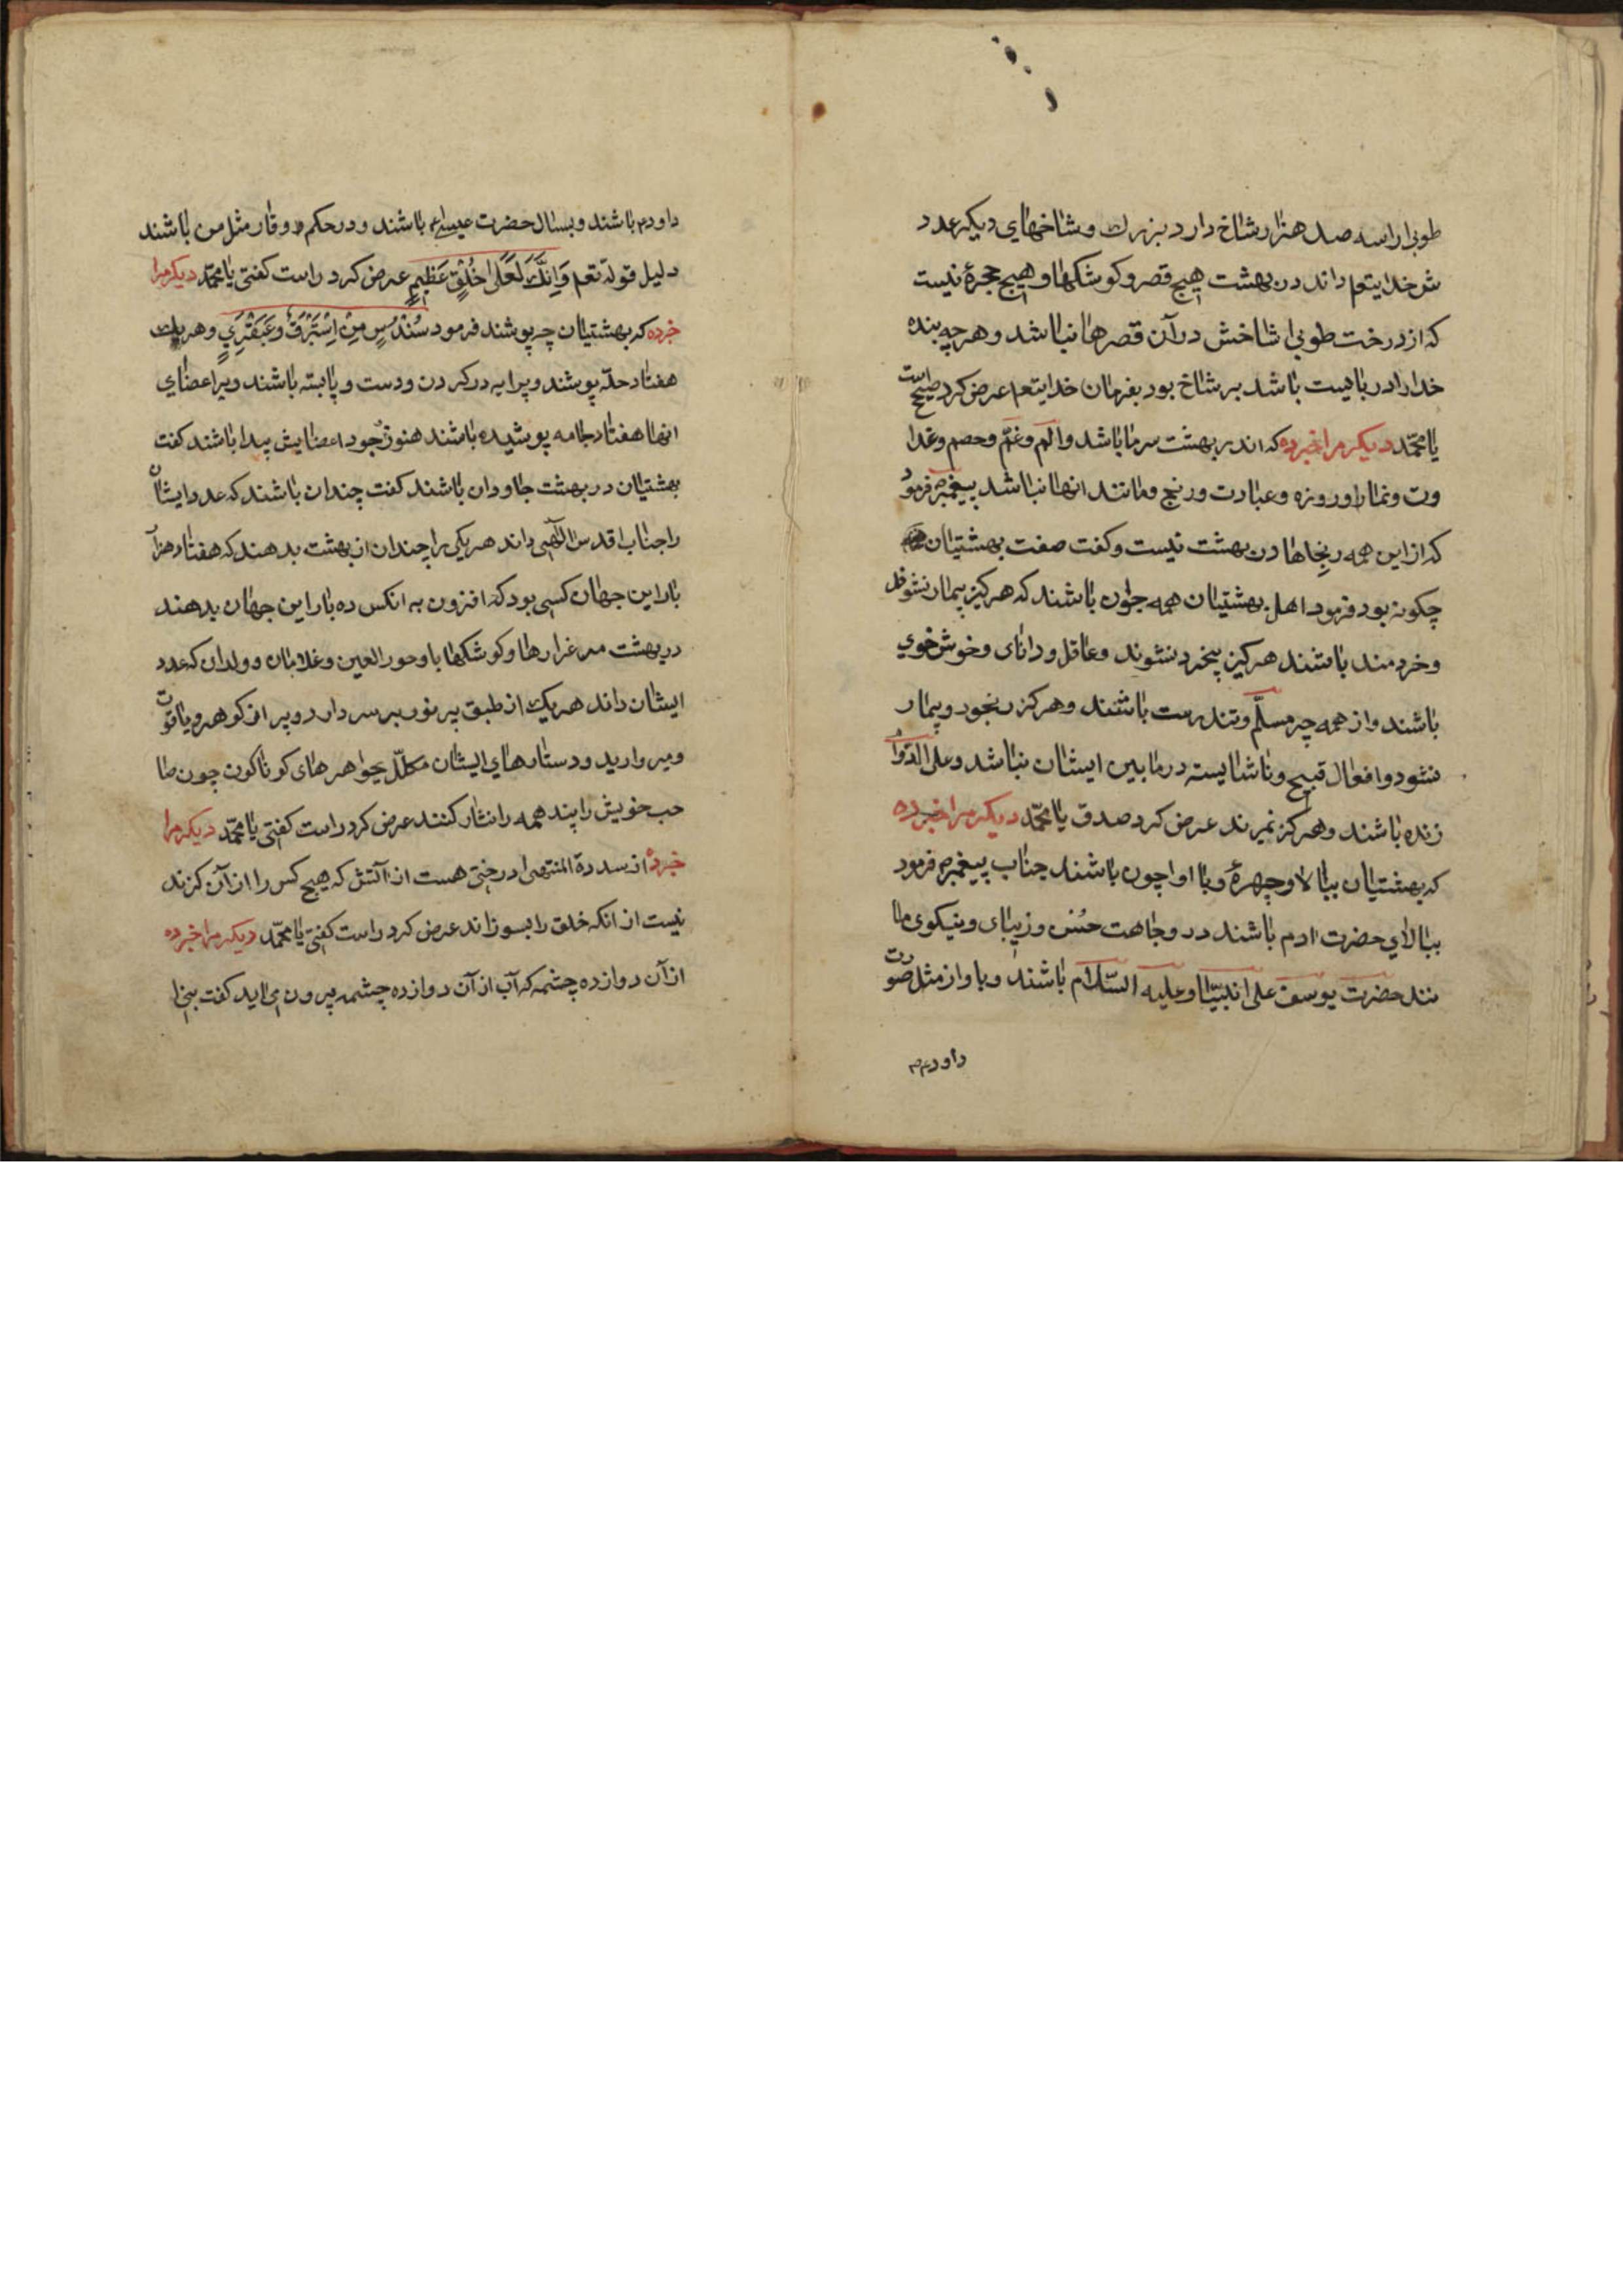 طوبی را سه صد هزار شاخ دارد بزرك و شاخهای دیکر عدد
ش خدایتعم داند در بهشت هیچ قصر و کوشکها و هیچ حجرهٔ نیست
که از درخت طوبی شاخش در آن قصرها نباشد و هر چه بنده
خدا را در بایست باشد بر شاخ بود بفرمان خدایتعم عرض کرد صیح است
یا محمّد دیکر مرا خبر ده که اندر بهشت سرما باشد و الم و غم و خصم و غدا
وت و نماز و روزه و عبادت و رنج و مانند انها نباشد پیغمبرص فرمود
که از این همه رنجاها در بهشت نیست و کفت صفت بهشتیان
چکونه بود فرمود اهل بهشتیان همه جوان باشند که هرکیز بیمار نشوند
و خردمند باشند هرکیز بیخرد نشوند و عاقل و دانای و خوش خوی
باشند و از همه چیر مسلّم و تندرست باشند و هرکز رنجور و بیمار
نشود و افعال قبیح و ناشایسته در مابین ایشان نباشد و علی الدّوا
زنده باشند و هرکز نمیرند عرض کرد صدق یا محمّد دیکر مرا خبر ده
که بهشتیان ببالا و چهرهٔ و با اوا چون باشند جناب پیغمبرص فرمود
ببالای حضرت ادم باشند در وجاهت حُسن و زیبای و نیکوی ما
نند حضرت یوسف علی انبیّنا و علیه السّلام باشند و باواز مثل صوت
داودعم
داودعم باشند و بسال حضرت عیسیٰعم باشند و در حکم و وقار مثل من باشند
دلیل قولهٔ تعم وَاِنَّكَ لَعَلیٰ خُلُقٍ عَظِیمٍ عرض کرد راست کفتی یا محمّد دیکر مرا
خبر ده که بهشتیان چه پوشند فرمود سُندُسٍ مِن اِستَبرَقٍ وَ عَبقَرِیٍ و هر یك
هفتاد حلّه پوشند و پرایه در کردن و دست و پا بسته باشند و بر اعضای
انها هفتاد جامه پوشیده باشند هنوز جود اعضایش پیدا باشند کفت
بهشتیان در بهشت جاودان باشند کفت چندان باشند که عدد ایشان
را جناب اقدس الٓهی داند هر یکی را چندان از بهشت بدهند که هفتاد هزار
بار این جهان کسی بود که افزون به انکس ده بار این جهان بدهند
در بهشت مرغزارها و کوشکها با و حور العین و غلامان و ولدان که عدد
ایشان داند هر یك از طبق پر نور بر سر دارد و پر از کوهر و یاقوت
و مروارید و دستارهای ایشان مکلّل بجواهرهای کوناکون چون صا
حب خویش را بیند همه را نثار کنند عرض کرد راست کفتی یا محمّد دیکر مرا
خبر ده از سدرة المنتهی درختی هست از آتش که هیچ کس را از آن کزند
نیست از انکه خلق را بسوزاند عرض کرد راست کفتی یا محمّد دیکر مرا خبر ده
از آن دوازده چشمه که آب از آن دوازده چشمه بیرون می‌اید کفت